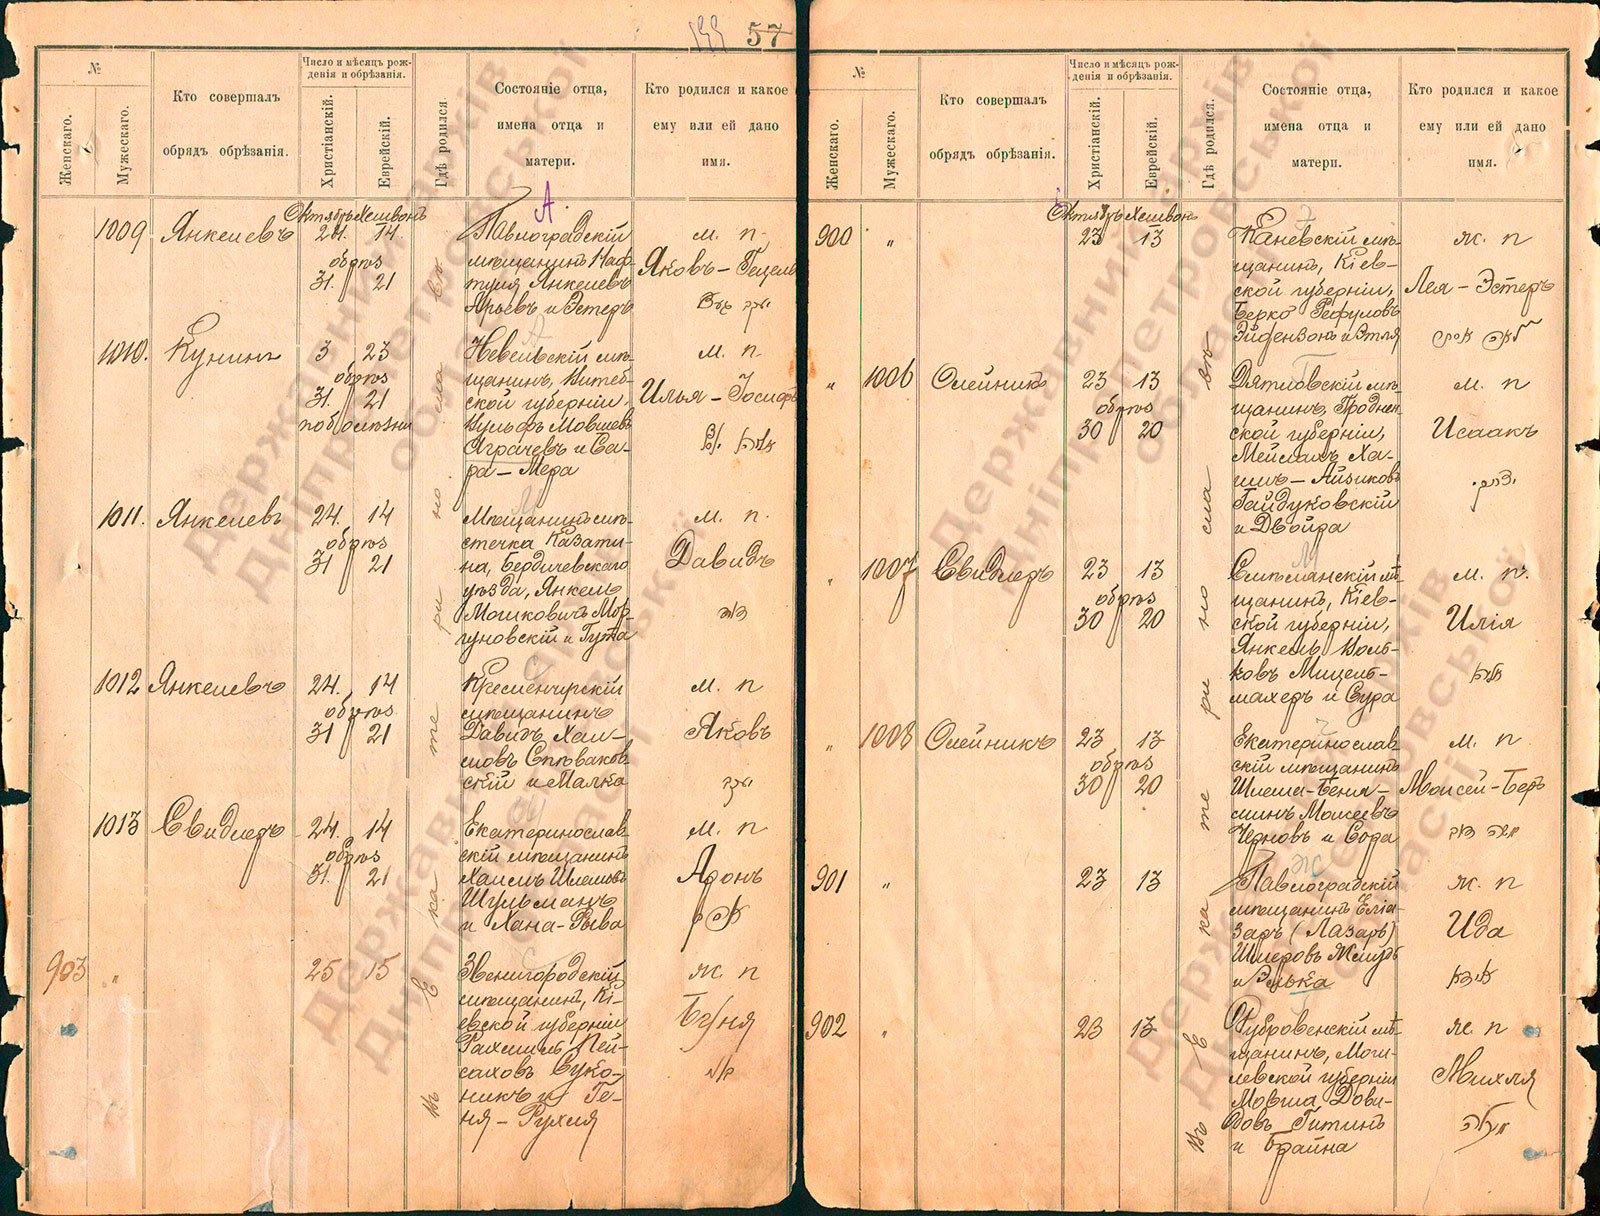 57
№
Женскаго.
Мужескаго.
Кто совершалъ
обрядъ обрѣзанія.
Число и мѣсяцъ рож-
денія и обрѣзанія.
Христіанскій.
Еврейскій.
Гдѣ родился.
Состояніе отца,
имена отца и
матери.
Кто родился и какое
ему или ей дано
имя.
А.
Октябрь Хешвонъ
1009 Янкелевъ 24. 14
обрѣз
31. 21
Павлоградскій
мѣщанинъ Наф-
тула Янкелевъ
Арьевъ и Эстеръ
м. п.
Яковъ – Гецель
1010. Кунинъ 3 23
обрѣз
31. 21
по болѣзни
Невельскій мѣ-
щанинъ, Витеб-
ской губерніи,
Вульфъ Мовшевъ
Аграчевъ и Са-
ра – Мера
м. п.
Илья – Іосифъ
1011. Янкелевъ 24. 14
обрѣз
31 21
Мѣщанинъ мѣ-
стечка Казати-
на, Бердичевскаго
уѣзда, Янкель
Мошковичъ Мор-
гуновскій и Гута
м. п.
Давидъ
דוד
1012 Янкелевъ 24. 14
обрѣз
31 21
Кременчугскій
мѣщанинъ
Давидъ Хаи-
мовъ Спѣваков-
скій и Малка
м. п
Яковъ
יעקב
1013 Свидлеръ 24. 14
обрѣз
31. 21
Екатеринослав-
скій мѣщанинъ
Хаимъ Шлемовъ
Шульманъ
и Хана-Рыва
м. п
Аронъ
אהרן
903 „ 25 15
Звенигородскій
мѣщанинъ, Кі-
евской губерніи
Рахмиль Пей-
саховъ Суко-
никъ и Ге-
ня – Рухля
ж. п
Въ Екатеринославѣ
№
Женскаго.
Мужескаго.
Кто совершалъ
обрядъ обрѣзанія.
Число и мѣсяцъ рож-
денія и обрѣзанія.
Христіанскій.
Еврейскій.
Гдѣ родился.
Состояніе отца,
имена отца и
матери.
Кто родился и какое
ему или ей дано
имя.
Октябрь Хешвонъ
900 „ 23 13
Каневскій мѣ-
щанинъ, Кіев-
ской губерніи,
Берко Рефуловъ
Эйдензонъ и Этля
ж. п
Лея – Эстеръ
„ 1006 Олейникъ 23 13
обрѣз
30 20
Дятловскій мѣ-
щанинъ, Гроднен-
ской губерніи,
Мейлахъ Ха-
имъ – Айзиковъ
Гайдуковскій
и Двойра
м. п
Исаакъ
יצחק
„ 1007 Свидлеръ 23 13
обрѣз
30 20
Смѣлянскій мѣ-
щанинъ, Кіев-
ской губерніи,
Янкель Воль-
ковъ Мицель-
махеръ и Сура
м. п.
Илія
אליהו
„ 1008 Олейникъ 23 13
обрѣз
30 20
Екатеринослав-
скій мѣщанинъ
Шлема-Беніа-
минъ Моисеевъ
Черновъ и Сора
м. п
Моисей-Беръ
משה בער
901 „ 23 13
Павлоградскій
мѣщанинъ Еліа-
заръ (Лазарь)
Шмеровъ
и Элька
ж. п
Ида
902 „ 23 13
Дубровенскій мѣ-
щанинъ, Моги-
левской губерніи
Мовша Дови-
довъ Гитинъ
и Брайна
ж. п
Михля
Въ Екатеринославѣ
Державний архів
Дніпропетровської
області